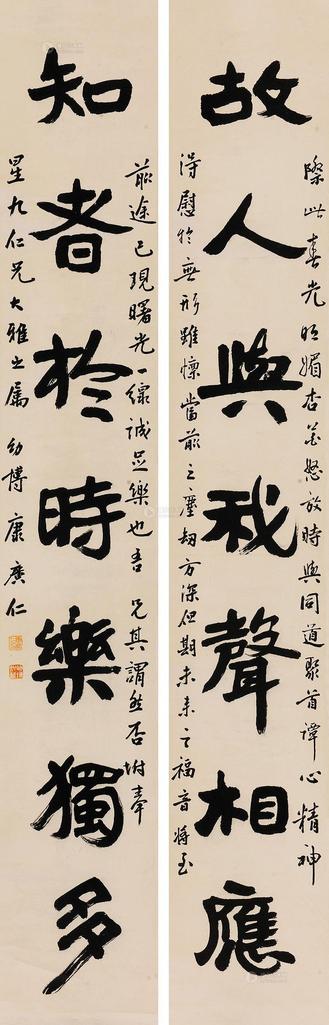 故人與我聲相應
際此春光明媚杏花怒放時與同道聚首譚心精神
得慰於無形雖懍當前之塵劫方深但期未來之福音將至
知者於時樂獨多
前途已現曙光一線誠足樂也吾兄其謂然否坿奉
星九仁兄大雅之屬 幼博康廣仁